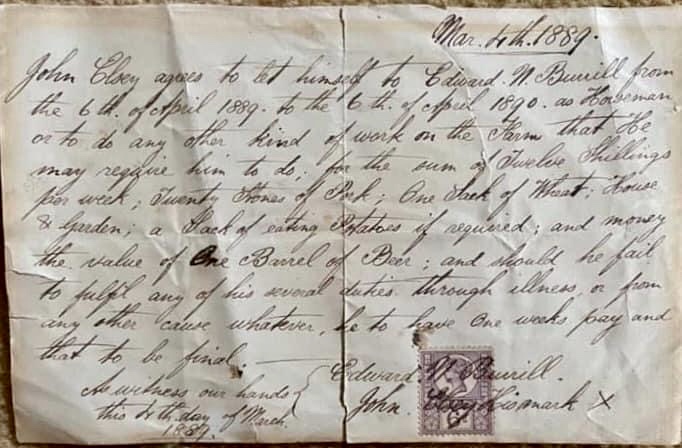 Mar. 4th. 1889.
John Elsey agrees to let himself to Edward N. Burrill from
the 6th. of April 1889. to the 6th. of April 1890. as Horseman
or to do any other kind of work on the Farm that He
may require him to do; for the sum of Twelve Shillings
per week; Twenty Stones of Pork; One Sack of Wheat; House
& Garden; a Sack of eating Potatoes if required; and money
the value of One Barrel of Beer; and should he fail
to fulfil any of his several duties through illness, or from
any other cause whatever, he to have One weeks pay and
that to be final.
Edward N. Burrill.
As witness our hands
this 4th day of March.
1889.
John. Elsey His mark X